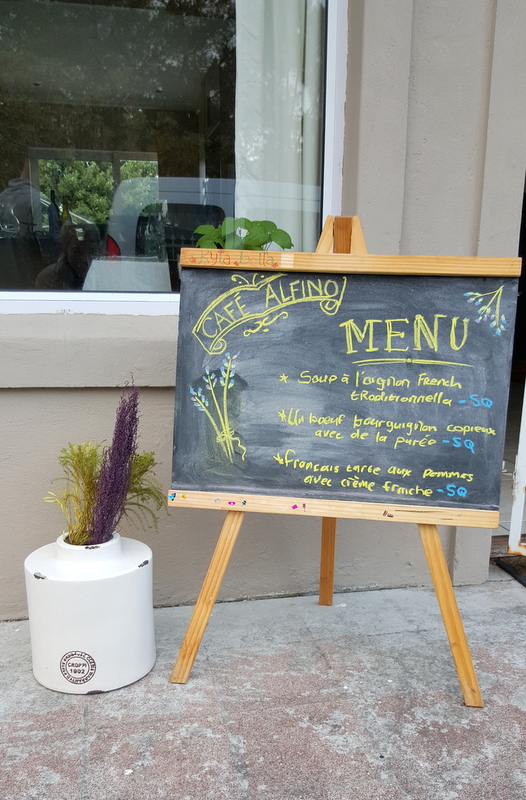 CAFÉ ALFINO
MENU
* Soup à l'oignon French
tRaditionnella - SQ
* Un bœuf bourguignon copieux
avec de la purée - SQ
* francais tarte aux pommes
avec crème fraiche - SQ
CROPP
1902